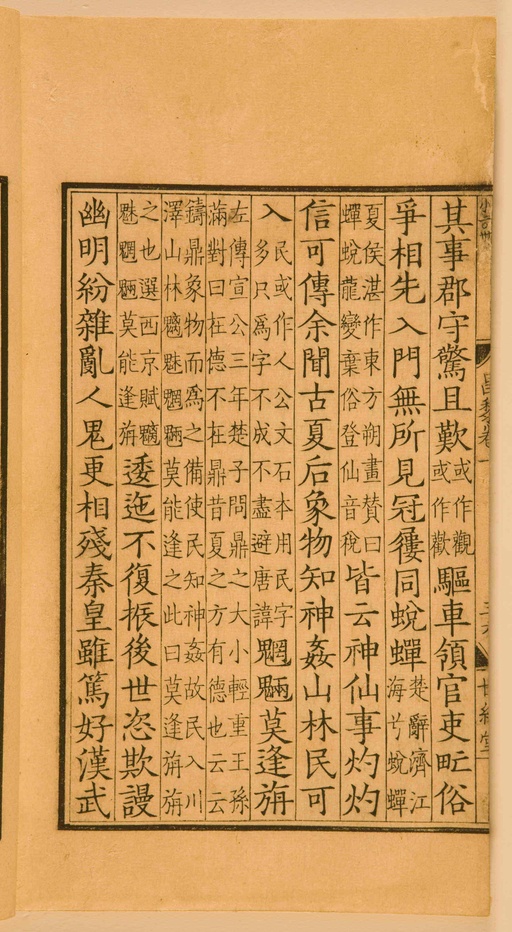 昌黎卷一
其事郡守驚且歎或作觀或作歡驅車領官吏甿俗
爭相先入門無所見冠屨同蛻蟬楚辭濟江海兮蛻蟬
夏侯湛作東方朔畫賛曰蟬蛻龍變棄俗登仙音稅皆云神仙事灼灼
信可傳余聞古夏后象物知神姦山林民可
入民或作人公文石本用民字多只爲字不成不盡避唐諱魍魎莫逢旃
左傳宣公三年楚子問鼎之大小輕重王孫滿對曰在德不在鼎昔夏之方有德也云云
鑄鼎象物而爲之備使民知神姦故民入川澤山林魑魅魍魎莫能逢之此曰莫逢旃旃
之也選西京賦魑魅魍魎莫能逢旃逶迤不復振後世恣欺謾
幽明紛雜亂人鬼更相殘秦皇雖篤好漢武